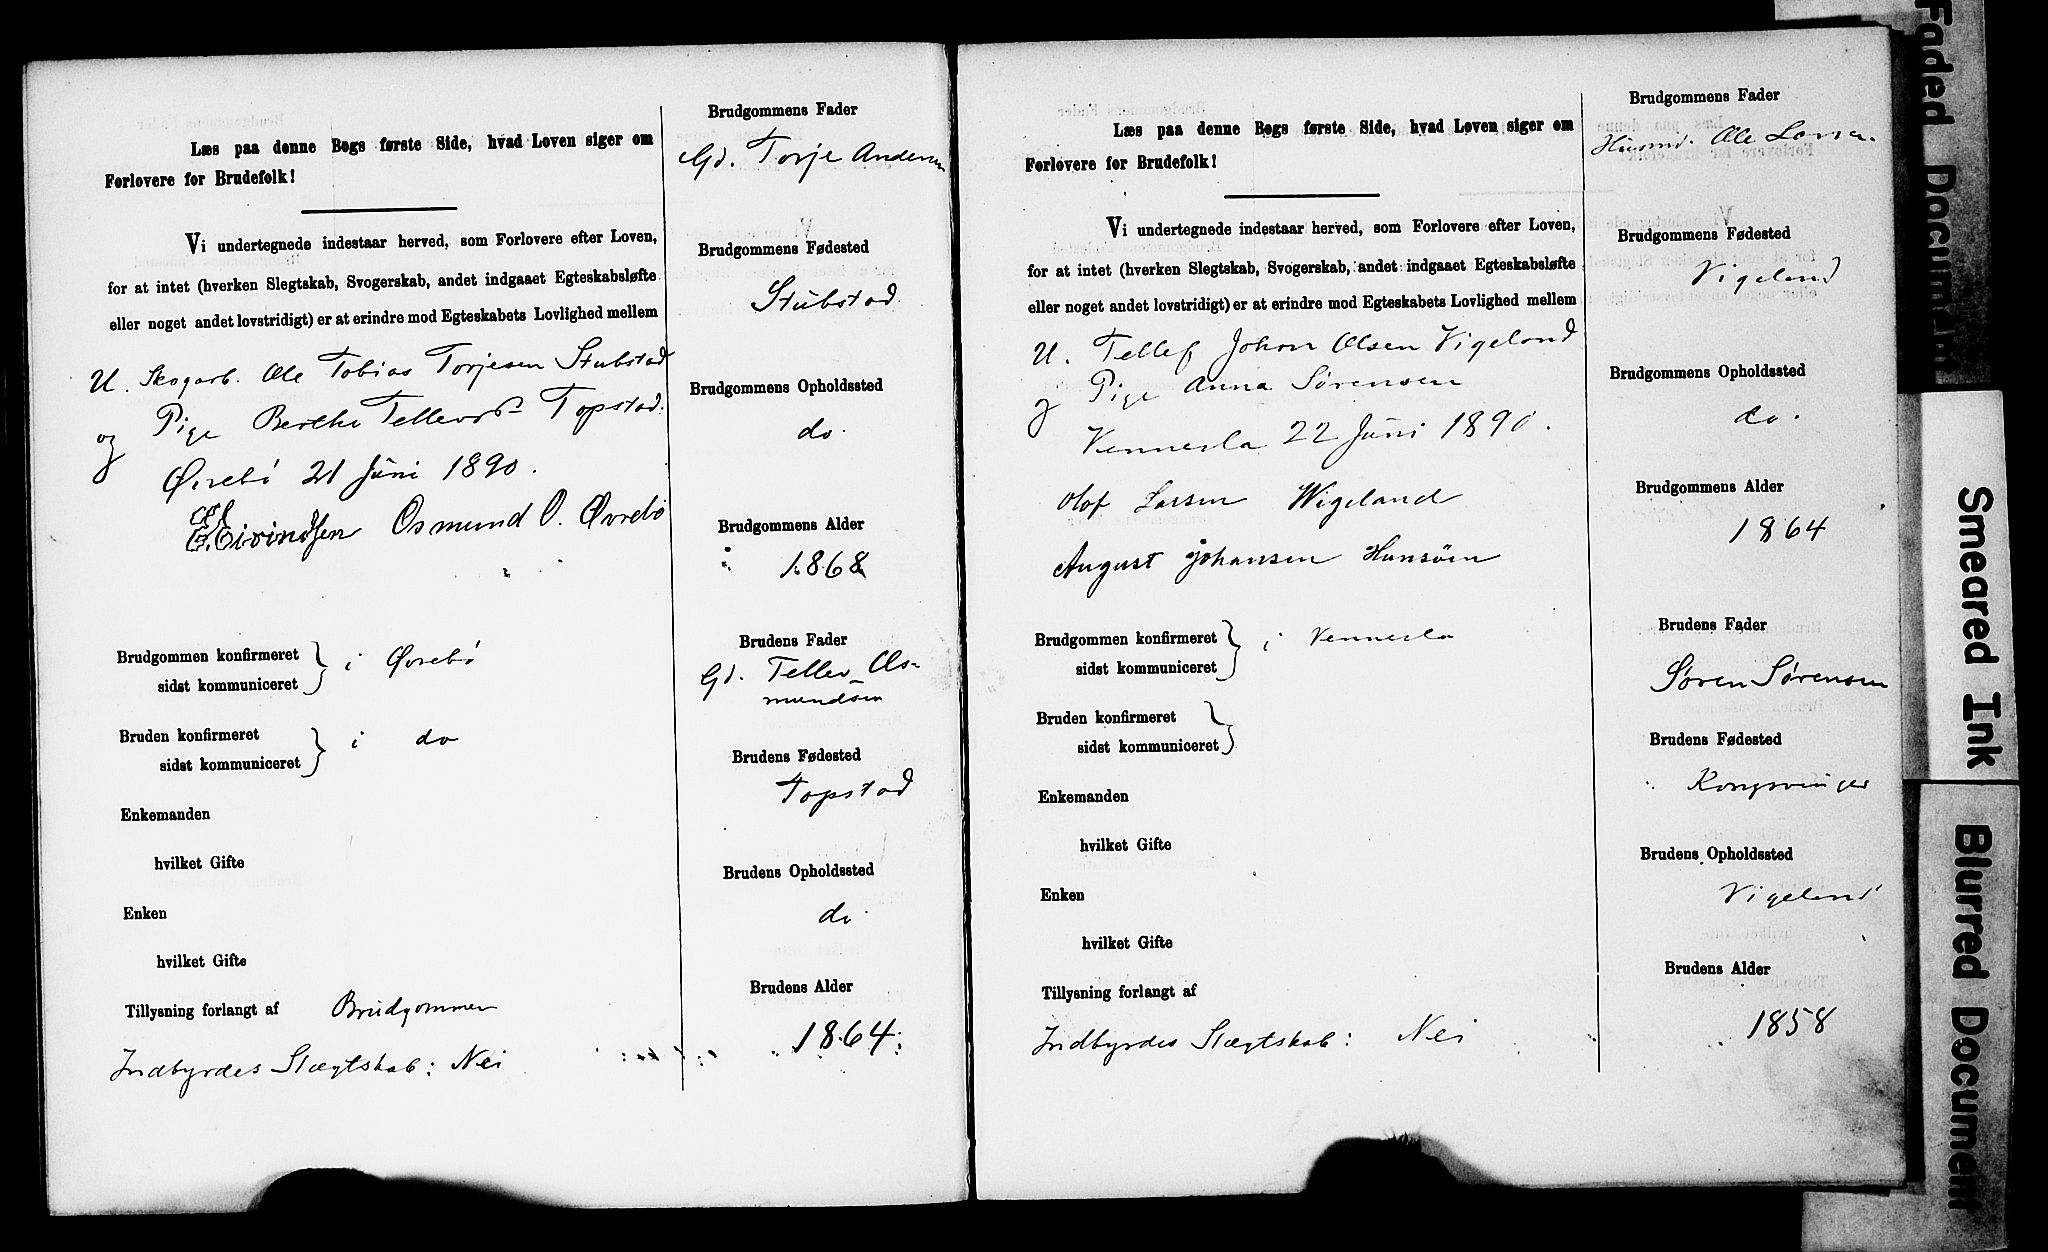 Læs paa denne Bogs første Side, hvad Loven siger om
Forlovere for Brudefolk!
Vi undertegnede indestaar herved, som Forlovere efter Loven,
for at intet (hverken Slegtskab, Svogerskab, andet indgaaet Egteskabsløfte
eller noget andet lovstridigt) er at erindre mod Egteskabets Lovlighed mellem
U. Skogarb. Ole Tobias Torjesen Stubstad
og Pige Berthe Tellevsd. Topstad.
Øvrebø 21 Juni 1890.
E. Eivindsen Osmund O. Øvrebø
Brudgommen konfirmeret
sidst kommuniceret
i Øvrebø
Bruden konfirmeret
sidst kommuniceret
i do
Enkemanden
hvilket Gifte
Enken
hvilket Gifte
Tillysning forlangt af Brudgommen
Indbyrdes Slægtskab: Nei
Brudgommens Fader
Gd. Torje Andersen
Brudgommens Fødested
Stubstad
Brudgommens Opholdssted
do.
Brudgommens Alder
1868
Brudens Fader
Gd. Tellev Os-
mundsen
Brudens Fødested
Topstad
Brudens Opholdssted
do.
Brudens Alder
1864
Læs paa denne Bogs første Side, hvad Loven siger om
Forlovere for Brudefolk!
Vi undertegnede indestaar herved, som Forlovere efter Loven,
for at intet (hverken Slegtskab, Svogerskab, andet indgaaet Egteskabsløfte
eller noget andet lovstridigt) er at erindre mod Egteskabets Lovlighed mellem
U. Tellef Johan Olsen Vigeland
og Pige Anna Sørensen
Vennesla 22 Juni 1890.
Olof Larsen Wigeland
August Johansen Hunsöen
Brudgommen konfirmeret
sidst kommuniceret
i Vennesla
Bruden konfirmeret
sidst kommuniceret
Enkemanden
hvilket Gifte
Enken
hvilket Gifte
Tillysning forlangt af
Indbyrdes Slægtskab: Nei
Brudgommens Fader
Husmd. Ole Larsen
Brudgommens Fødested
Vigeland
Brudgommens Opholdssted
do.
Brudgommens Alder
1864
Brudens Fader
Søren Sørensen
Brudens Fødested
Kongsvinger
Brudens Opholdssted
Vigeland
Brudens Alder
1858
Faded Document
Smeared Ink
Blurred Document